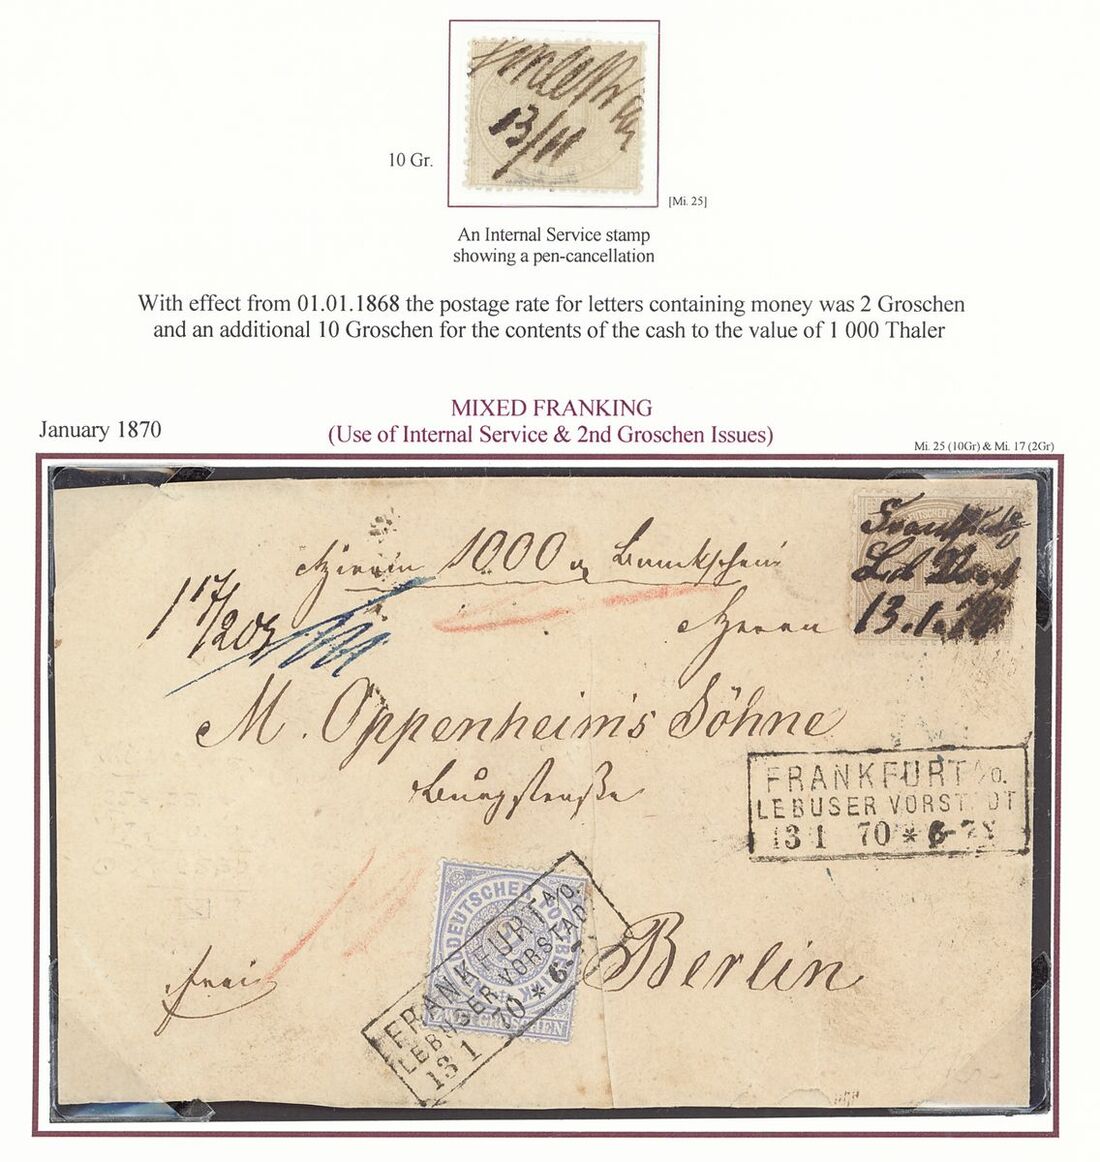 13/11
10 Gr.
[Mi. 25]
An Internal Service stamp
showing a pen-cancellation
With effect from 01.01.1868 the postage rate for letters containing money was 2 Groschen
and an additional 10 Groschen for the contents of the cash to the value of 1 000 Thaler
MIXED FRANKING
January 1870
(Use of Internal Service & 2nd Groschen Issues)
Mi. 25 (10Gr) & Mi. 17 (2Gr)
DEUTSCHER
Hierin 1000
Herrn
13.1.70
M. Oppenheim's Söhne
Burgstraße
FRANKFURT A/O.
LEBUSER VORSTADT
13 1 70 * 6-7
DEUTSCHER POSTBEZIRK
ZWEI GROSCHEN
FRANKFURT A/O.
LEBUSER VORSTAD
13 1 70 * 6-7
Berlin
frei